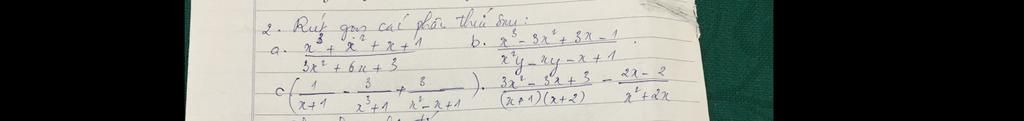 2. Rút gọn các phân thức sau:
a. \frac{x^3 + x^2 + x + 1}{3x^2 + 6x + 3} b. \frac{x^3 - 3x^2 + 3x - 1}{x^2y - xy - x + 1}.
c (\frac{1}{x+1} - \frac{3}{x^3+1} + \frac{3}{x^2-x+1}) . \frac{3x^2 - 3x + 3}{(x+1)(x+2)} - \frac{2x - 2}{x^2 + 2x}